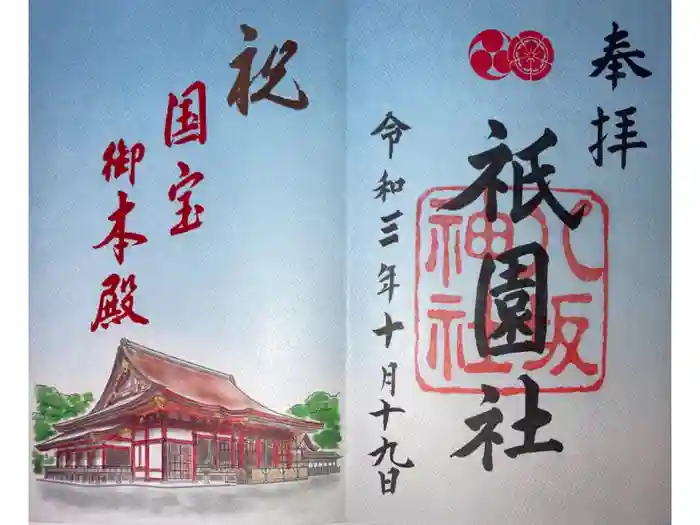 奉拝
祇園社
八坂神社
令和三年十月十九日
祝
国宝
御本殿